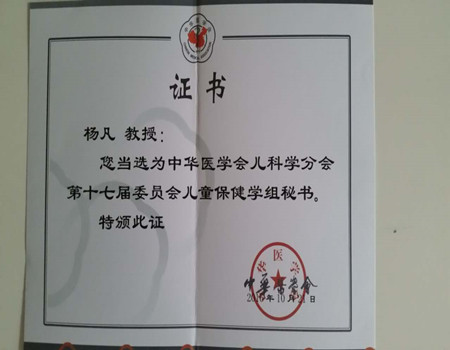 证书
杨凡 教授：
您当选为中华医学会儿科学分会
第十七届委员会儿童保健学组秘书。
特颁此证
中华医学会